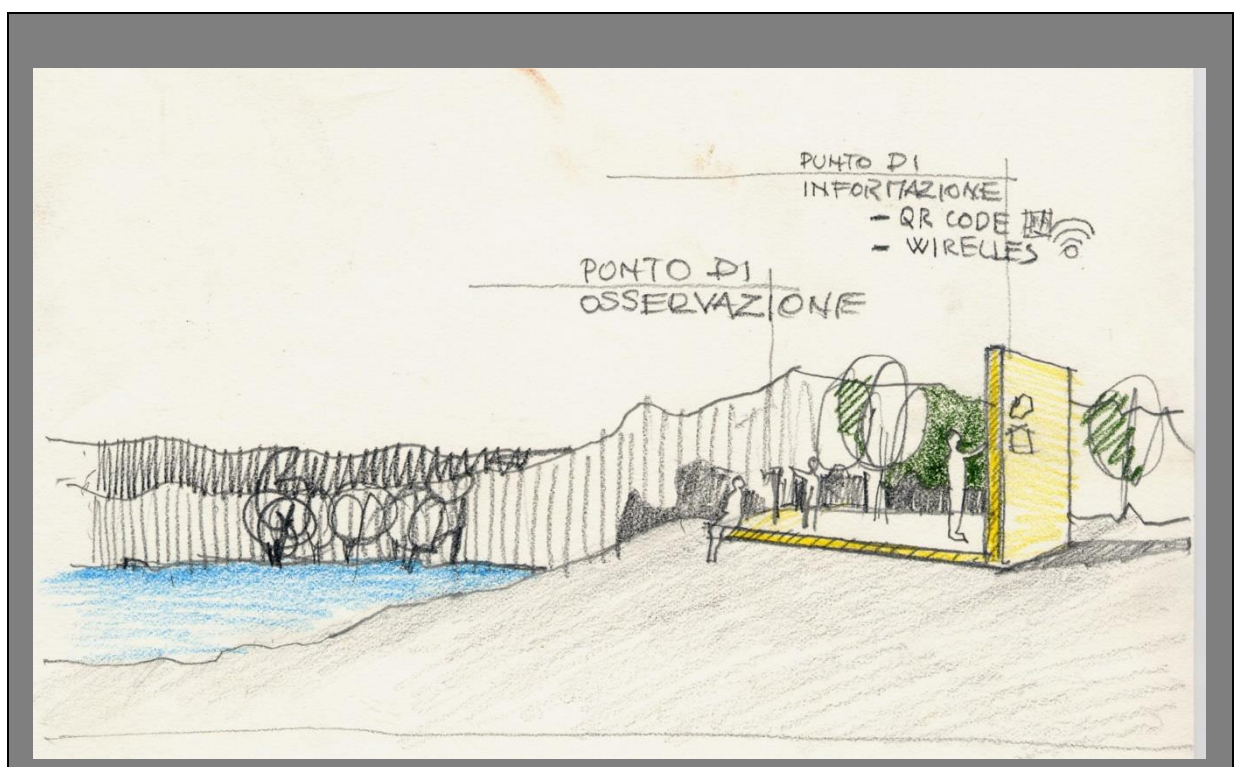 PUNTO DI
INFORMAZIONE
- QR CODE
- WIRELLES
PONTO DI
OSSERVAZIONE